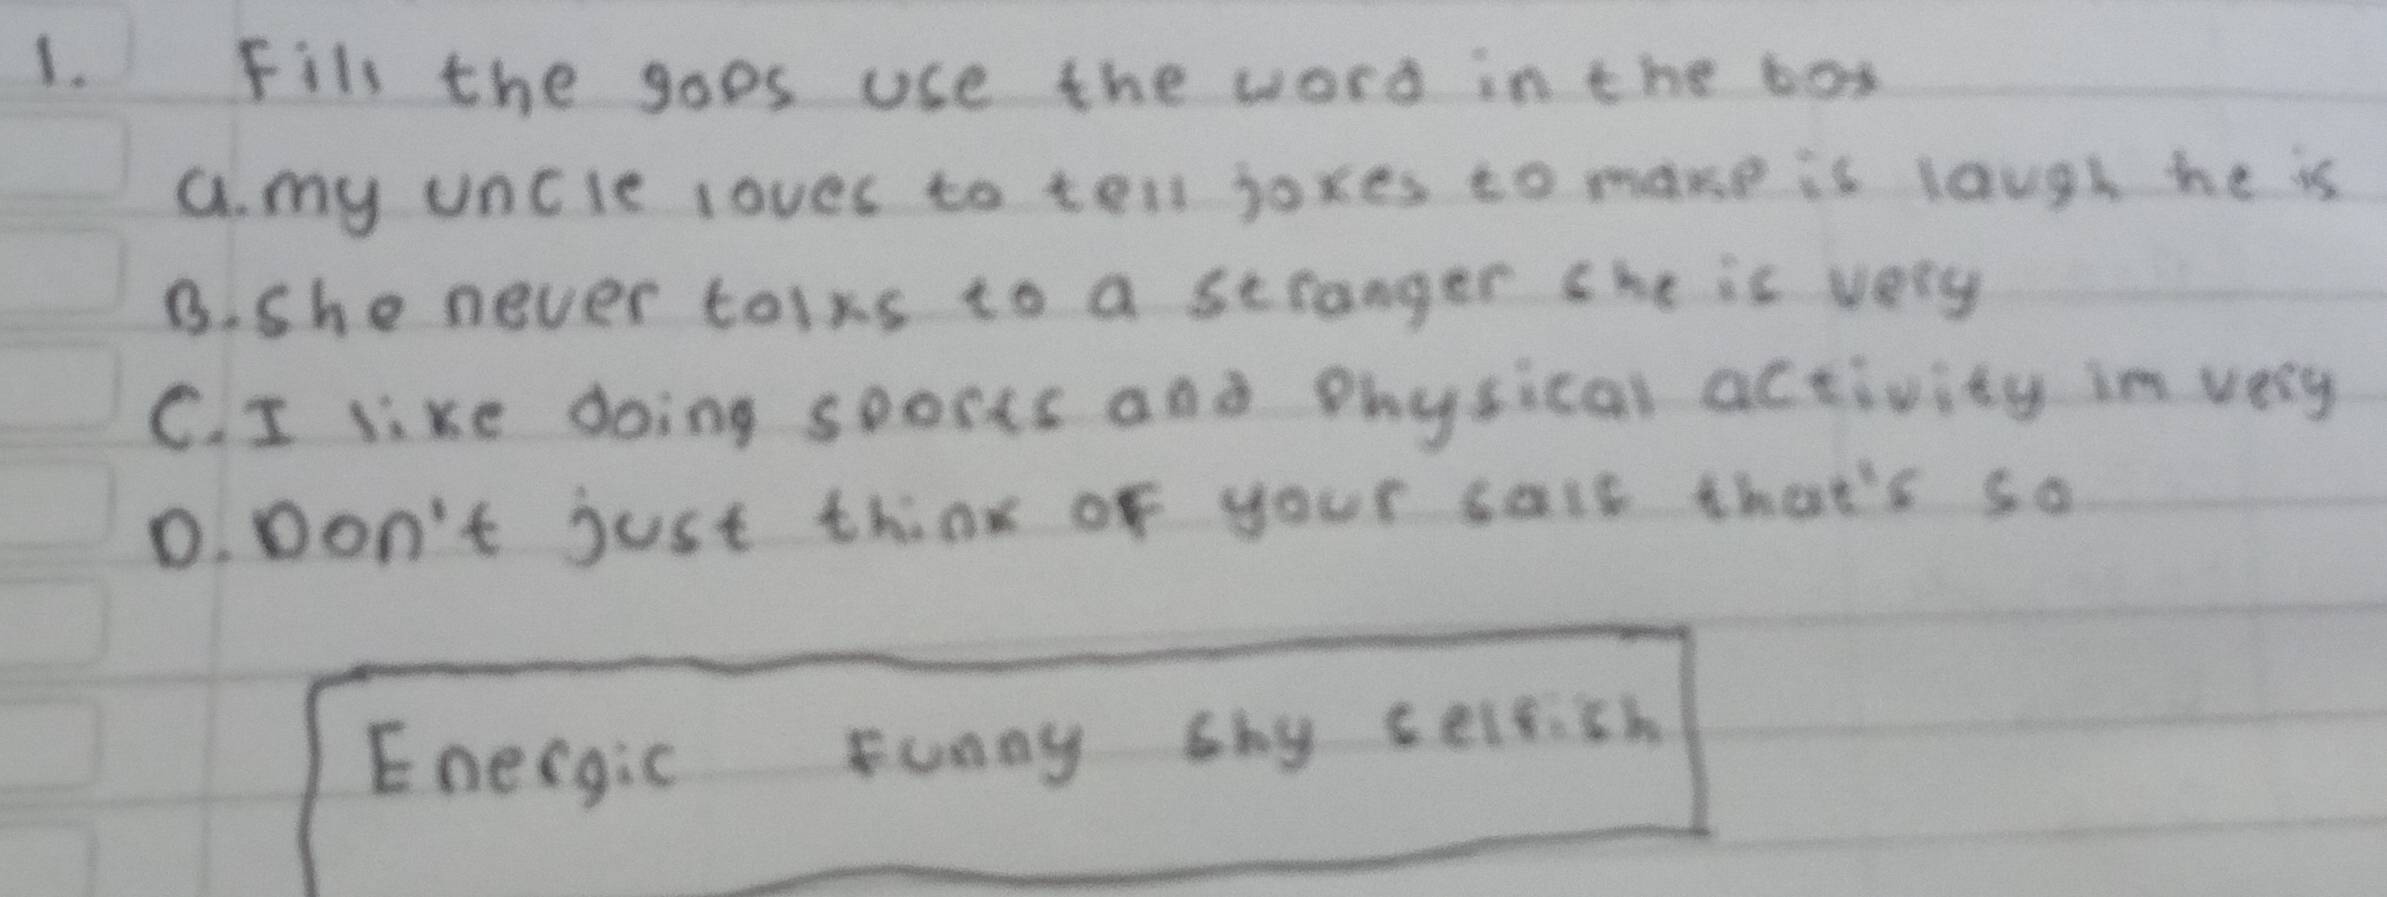 1. Fill the gaps use the word in the box
a. my uncle loves to tell jokes to make is laugh he is
B. She never talks to a stranger she is very
C. I like doing sports and Physical activity im very
D. Don't just think of your salf that's so
Energic Funny shy selfish